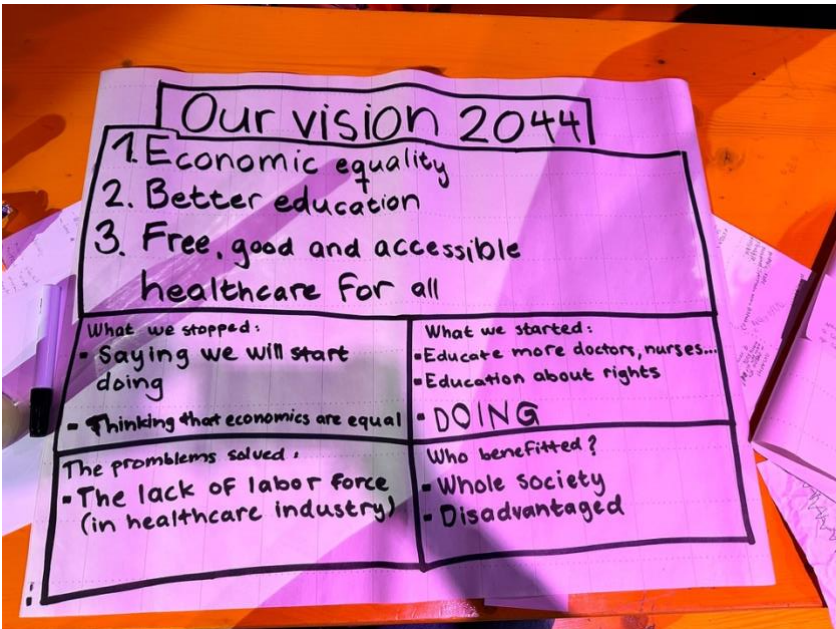 Our vision 2044
1. Economic equality
2. Better education
3. Free, good and accessible
healthcare for all
What we stopped:
- Saying we will start
doing
- Thinking that economics are equal
What we started:
- Educate more doctors, nurses...
- Education about rights
- DOING
The promblems solved:
- The lack of labor force
(in healthcare industry)
Who benefitted?
- Whole society
- Disadvantaged